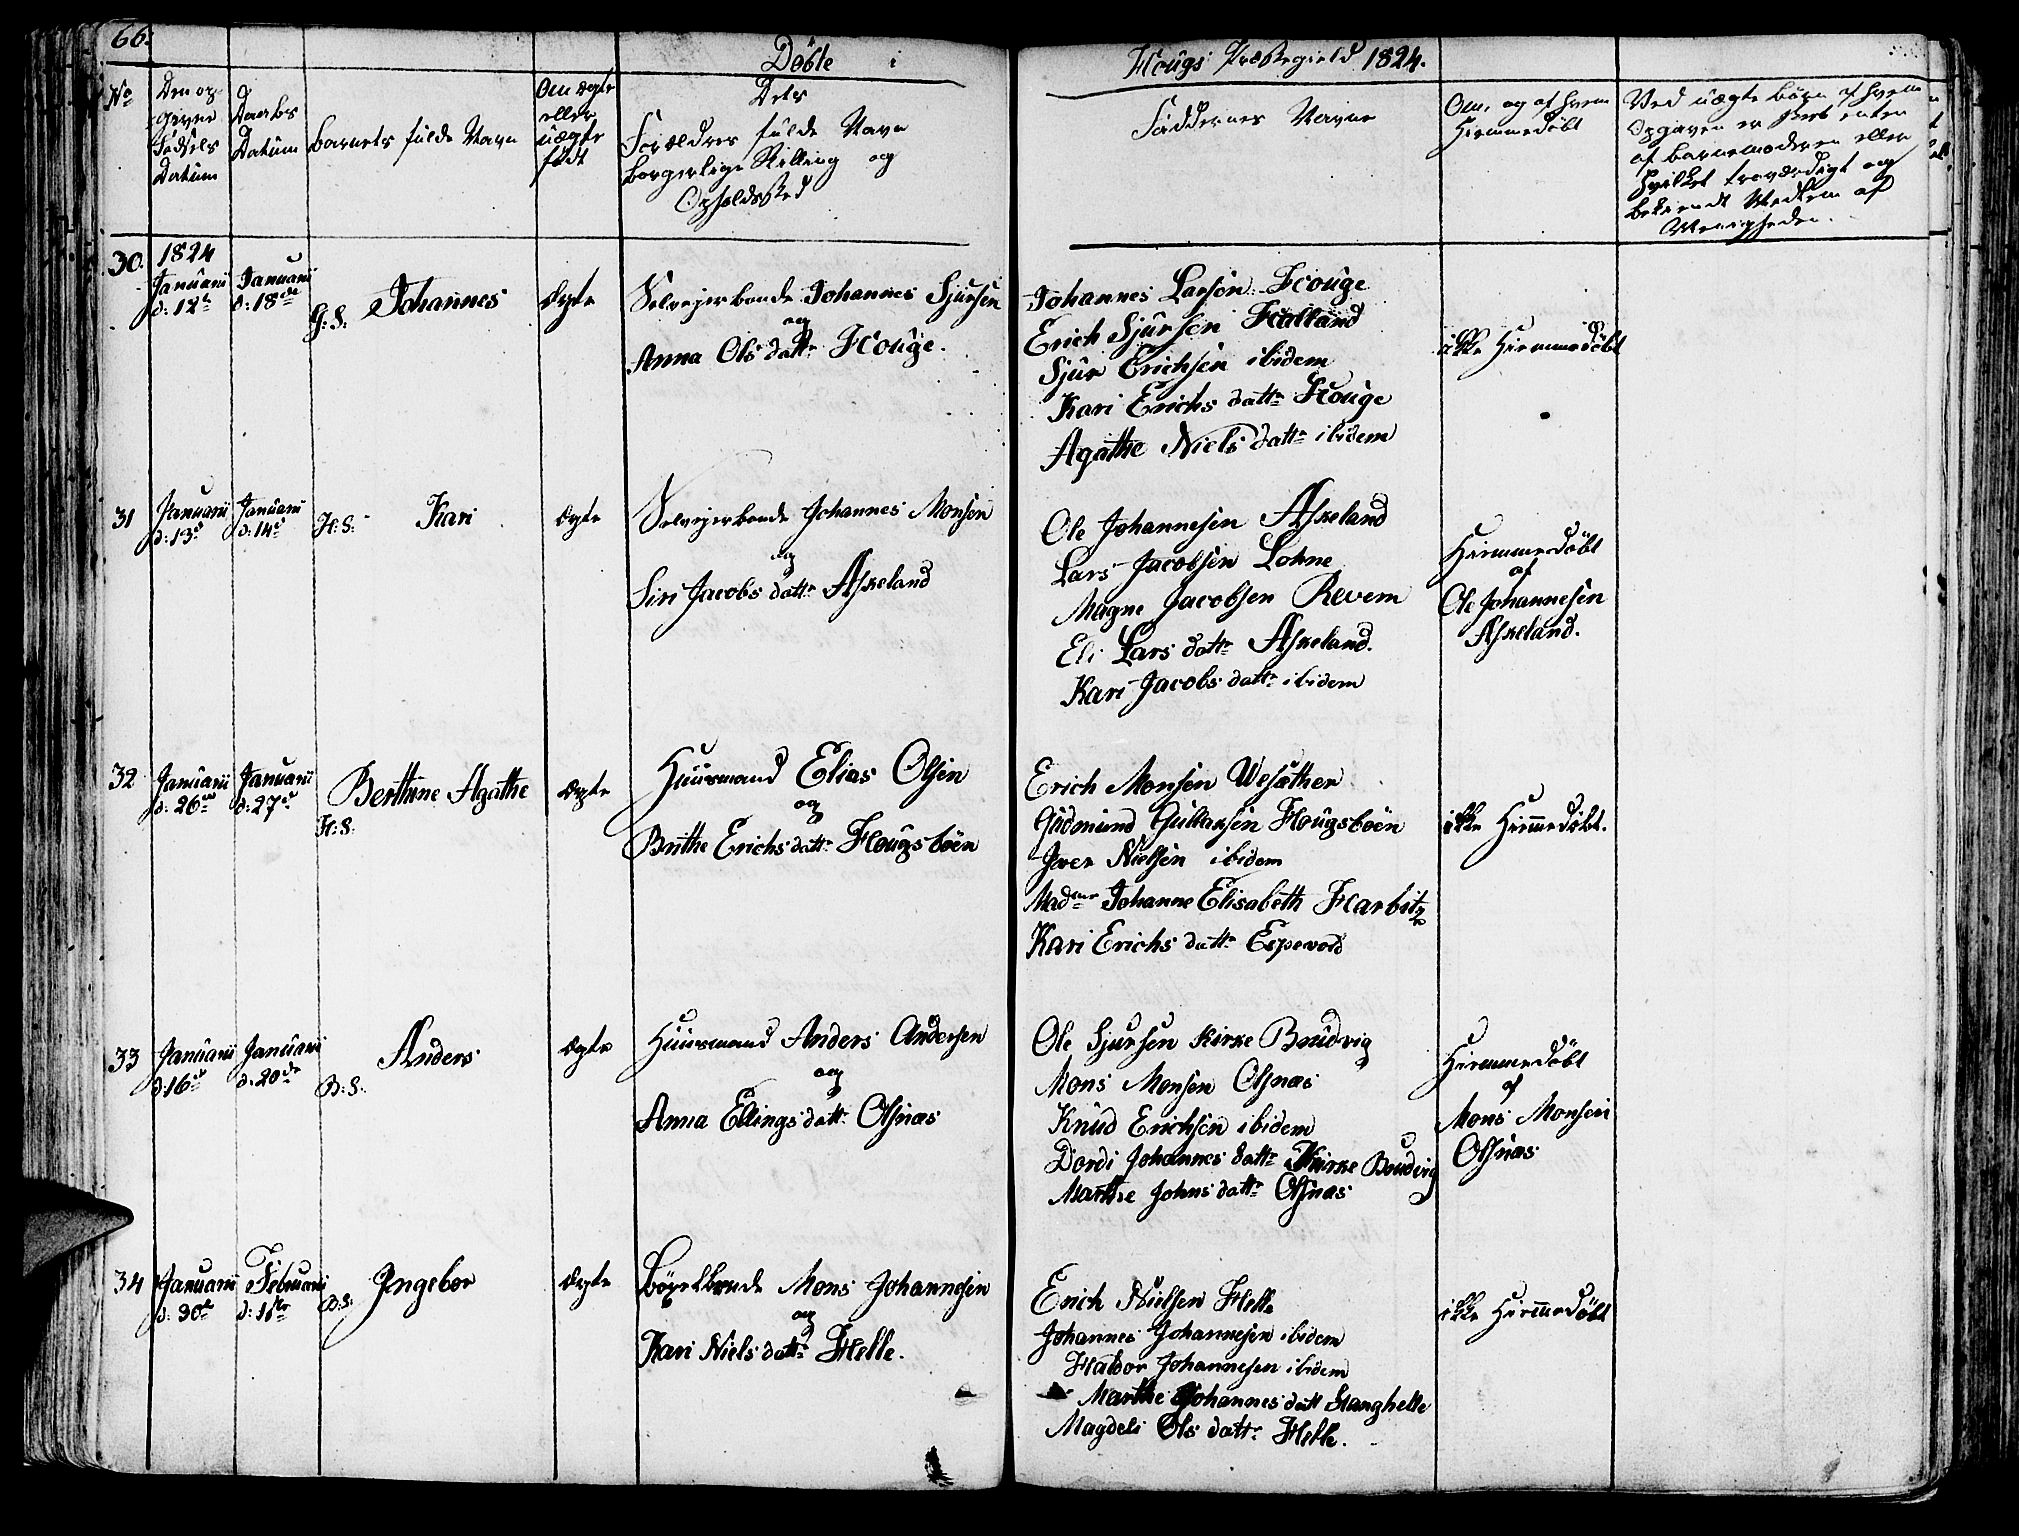 66.
Döbte i
Hougs Præstegield 1824.
No
Den op-
givne
Fødsels
Datum
Daabs
Datum
Barnets fulde Navn
Om ægte
eller
uægte
født
Dets
Forældres fulde Navn
borgerlige Stilling og
Opholdssted
Faddernes Navne
Om, og af hvem
Hiemmedöbt
Ved uægte børn af hvem
Opgaven er skeet enten
af barnemoderen eller
hvilket troværdigt og
bekiendt Medlem af
Menigheden.
30. 1824
Januarii d: 12te
Januarii d: 18de
H: S: Johannes
Ægte
Selvejerbonde Johannes Sjursen
og
Anna Ols dattr Houge.
Johannes Larsen Houge
Erich Sjursen Halland
Sjur Erichsen ibidem
Kari Erichs dattr Houge
Agathe Niels dattr ibidem
ikke Hiemmedöbt
31
Januarii d: 13d
Januarii d: 14d
H: S: Kari
Ægte
Selvejerbonde Johannes Monsen
og
Siri Jacobs dattr Askeland
Ole Johannesen Askeland
Lars Jacobsen Lohne
Magne Jacobsen Revem
Eli Lars dattr Askeland.
Kari Jacobs dattr ibidem
Hiemmedöbt
af
Ole Johannesen
Askeland.
32
Januarii d: 26de
Januarii d: 27de
H: S:
Berthine Agathe
Ægte
Huusmand Elias Olsen
og
Brithe Erichs dattr Hougsböen
Erich Monsen Wesæther
Gudmund Gullaksen Hougsböen
Iver Nielsen ibidem
Madme Johanne Elisabeth Harbitz
Kari Erichs dattr Espevold
ikke Hiemmedöbt.
33
Januarii d: 16de
Januarii d: 20de
B: S: Anders
Ægte
Huusmand Anders Andersen
og
Anna Ellings datt: Olsnæs
Ole Sjursen Kirke Bruvig
Mons Monsen Olsnæs
Knud Erichsen ibidem
Dordi Johannes dattr Kirke Bruvig
Marthe Johns dattr Olsnæs
Hiemmedöbt
af
Mons Monsen
Olsnæs
34
Januarii d: 30te
Februarii d: 1ste
B: S: Ingebor
Ægte
Böxelbonde Mons Johannesen
og
Kari Niels dattr Helle.
Erich Nielsen Helle
Johannes Johannesen ibidem
Haldor Johannesen ibidem
Marthe Johannes datt Stanghelle
Magdeli Ols dattr Helle.
ikke Hiemmedöbt